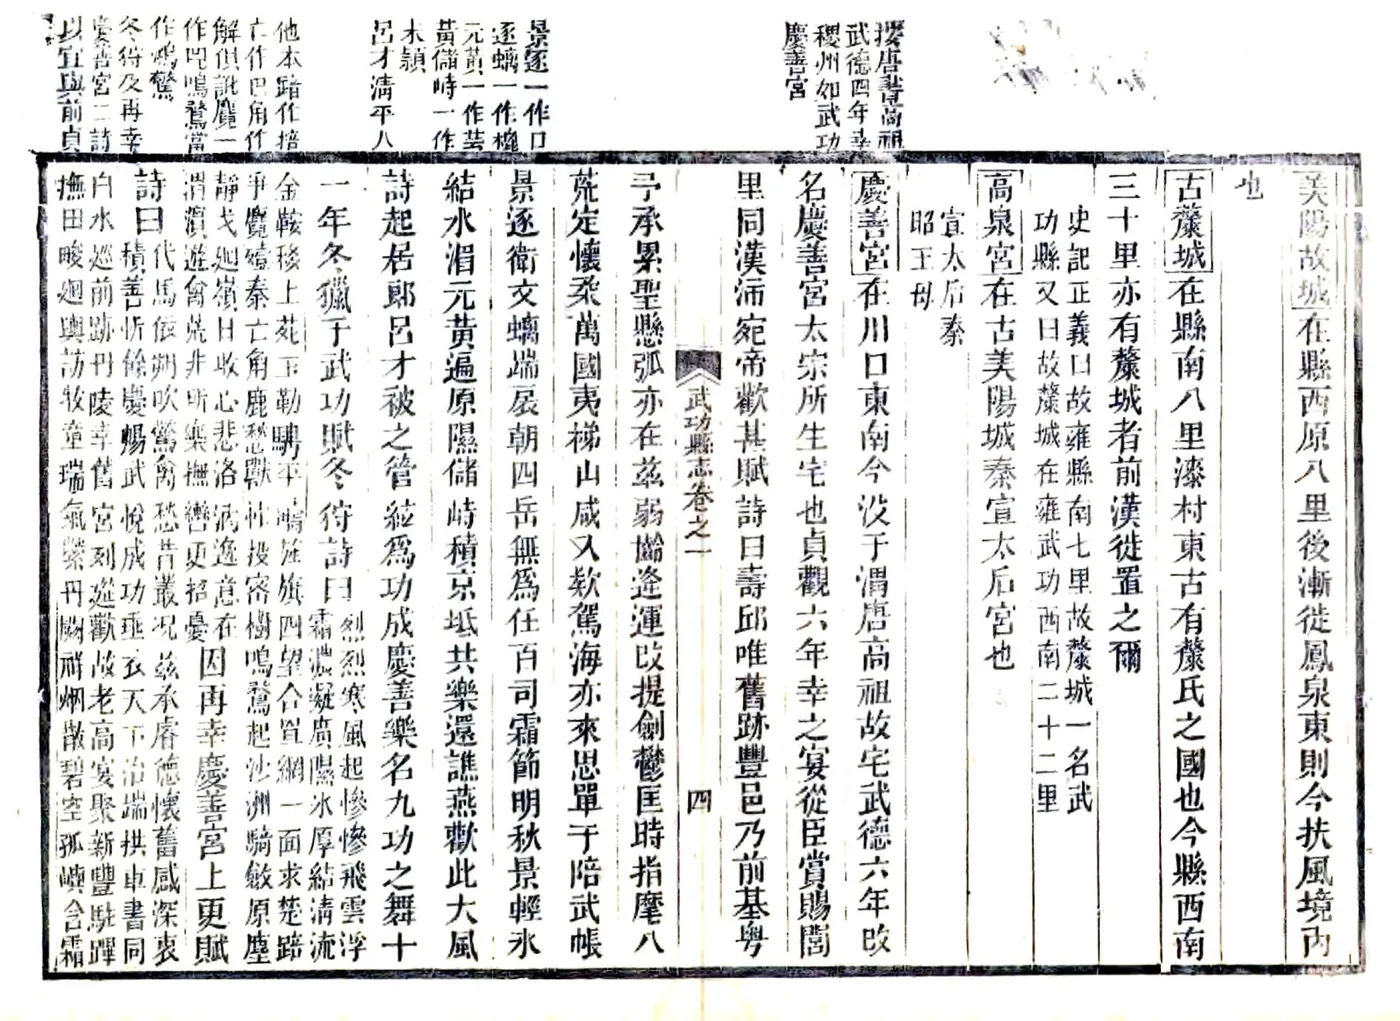 按唐書高祖
武德四年幸
稷州如武功
慶善宮
景逐一作口
逐螭一作
元黃一作芸
黃儲峙一作
未穎
呂才清平人
他本踣作掊
亡作巴角作
解俱訛麑一
作咒鳴鶩當
作鴻驚
冬狩及再幸
慶善宮二詩
以宜與前貞
美陽故城在縣西原八里後漸徙鳳泉東則今扶風境內
也
古斄城在縣南八里漆村東古有斄氏之國也今縣西南
三十里亦有斄城者前漢徙置之爾
史記正義曰故雍縣南七里故斄城一名武
功縣又曰故斄城在雍武功西南二十二里
高泉宮在古美陽城秦宣太后宮也
宣太后秦
昭王母
慶善宮在川口東南今沒于渭唐高祖故宅武德六年改
名慶善宮太宗所生宅也貞觀六年幸之宴從臣賞賜閭
里同漢沛宛帝歡甚賦詩曰壽邱唯舊跡豐邑乃前基粵
武功縣志卷之一
四
予承累聖懸弧亦在茲弱齡逢運改提劍鬱匡時指麾八
荒定懷柔萬國夷梯山咸入款駕海亦來思單于陪武帳
景逐衛文螭端扆朝四岳無爲任百司霜節明秋景輕氷
結水湄元黃遍原隰儲峙積京坻共樂還譙燕歡此大風
詩起居郎呂才被之管絃爲功成慶善樂名九功之舞十
一年冬獵于武功賦冬狩詩曰烈烈寒風起慘慘飛雲浮
霜濃凝廣隰氷厚結清流
金鞍移上苑玉勒騁平疇旌旗四望合罝網一面求楚踣
爭麑嬉秦亡角鹿愁獸忙投密樹鳴鶩起沙洲騎斂原塵
靜戈迴嶺日收心悲洛汭逸意在
渭濱遊禽荒非所樂撫轡更招憂因再幸慶善宮上更賦
詩曰代馬依朔吹驚禽愁昔叢況茲承睿德懷舊感深衷
積善忻餘慶暢武悅成功垂衣天下治端拱車書同
白水巡前跡丹陵幸舊宮列筵歡故老高宴聚新豐駐蹕
撫田畯廻輿訪牧童瑞氣縈丹闕祥烟散碧空孤嶼含霜